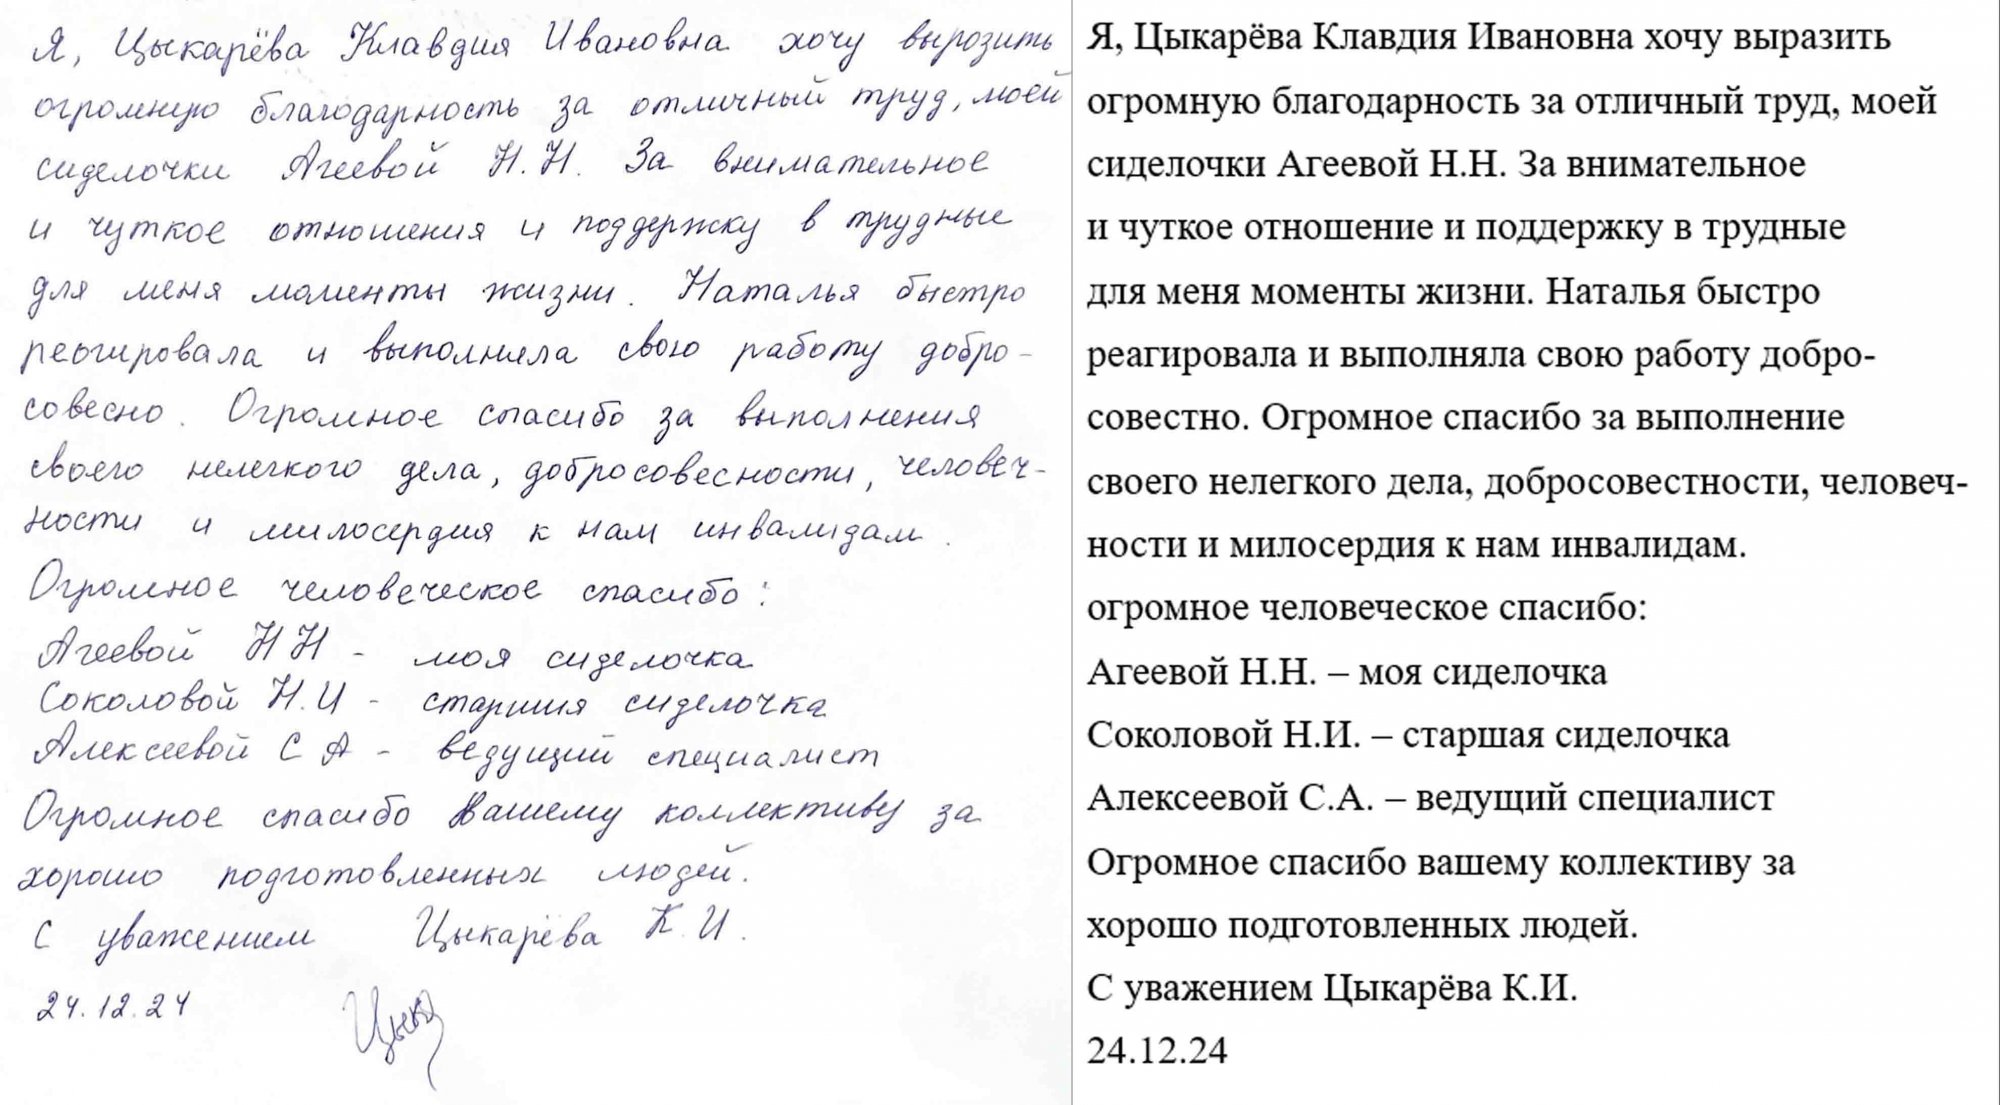 Я, Цыкарёва Клавдия Ивановна хочу выразить
огромную благодарность за отличный труд, моей
сиделочки Агеевой Н.Н. За внимательное
и чуткое отношения и поддержку в трудные
для меня моменты жизни. Наталья быстро
реогировала и выполняла свою работу добро-
совесно. Огромное спасибо за выполнения
своего нелегкого дела, добросовесности, человеч-
ности и милосердия к нам инвалидам.
Огромное человеческое спасибо:
Агеевой Н Н - моя сиделочка
Соколовой Н.И - старшия сиделочка
Алексеевой С А - ведущий специалист
Огромное спасибо Вашему коллективу за
хорошо подготовленных людей.
С уважением Цыкарёва К.И.
24.12.24
Цыка
Я, Цыкарёва Клавдия Ивановна хочу выразить
огромную благодарность за отличный труд, моей
сиделочки Агеевой Н.Н. За внимательное
и чуткое отношение и поддержку в трудные
для меня моменты жизни. Наталья быстро
реагировала и выполняла свою работу добро-
совестно. Огромное спасибо за выполнение
своего нелегкого дела, добросовестности, человеч-
ности и милосердия к нам инвалидам.
огромное человеческое спасибо:
Агеевой Н.Н. – моя сиделочка
Соколовой Н.И. – старшая сиделочка
Алексеевой С.А. – ведущий специалист
Огромное спасибо вашему коллективу за
хорошо подготовленных людей.
С уважением Цыкарёва К.И.
24.12.24